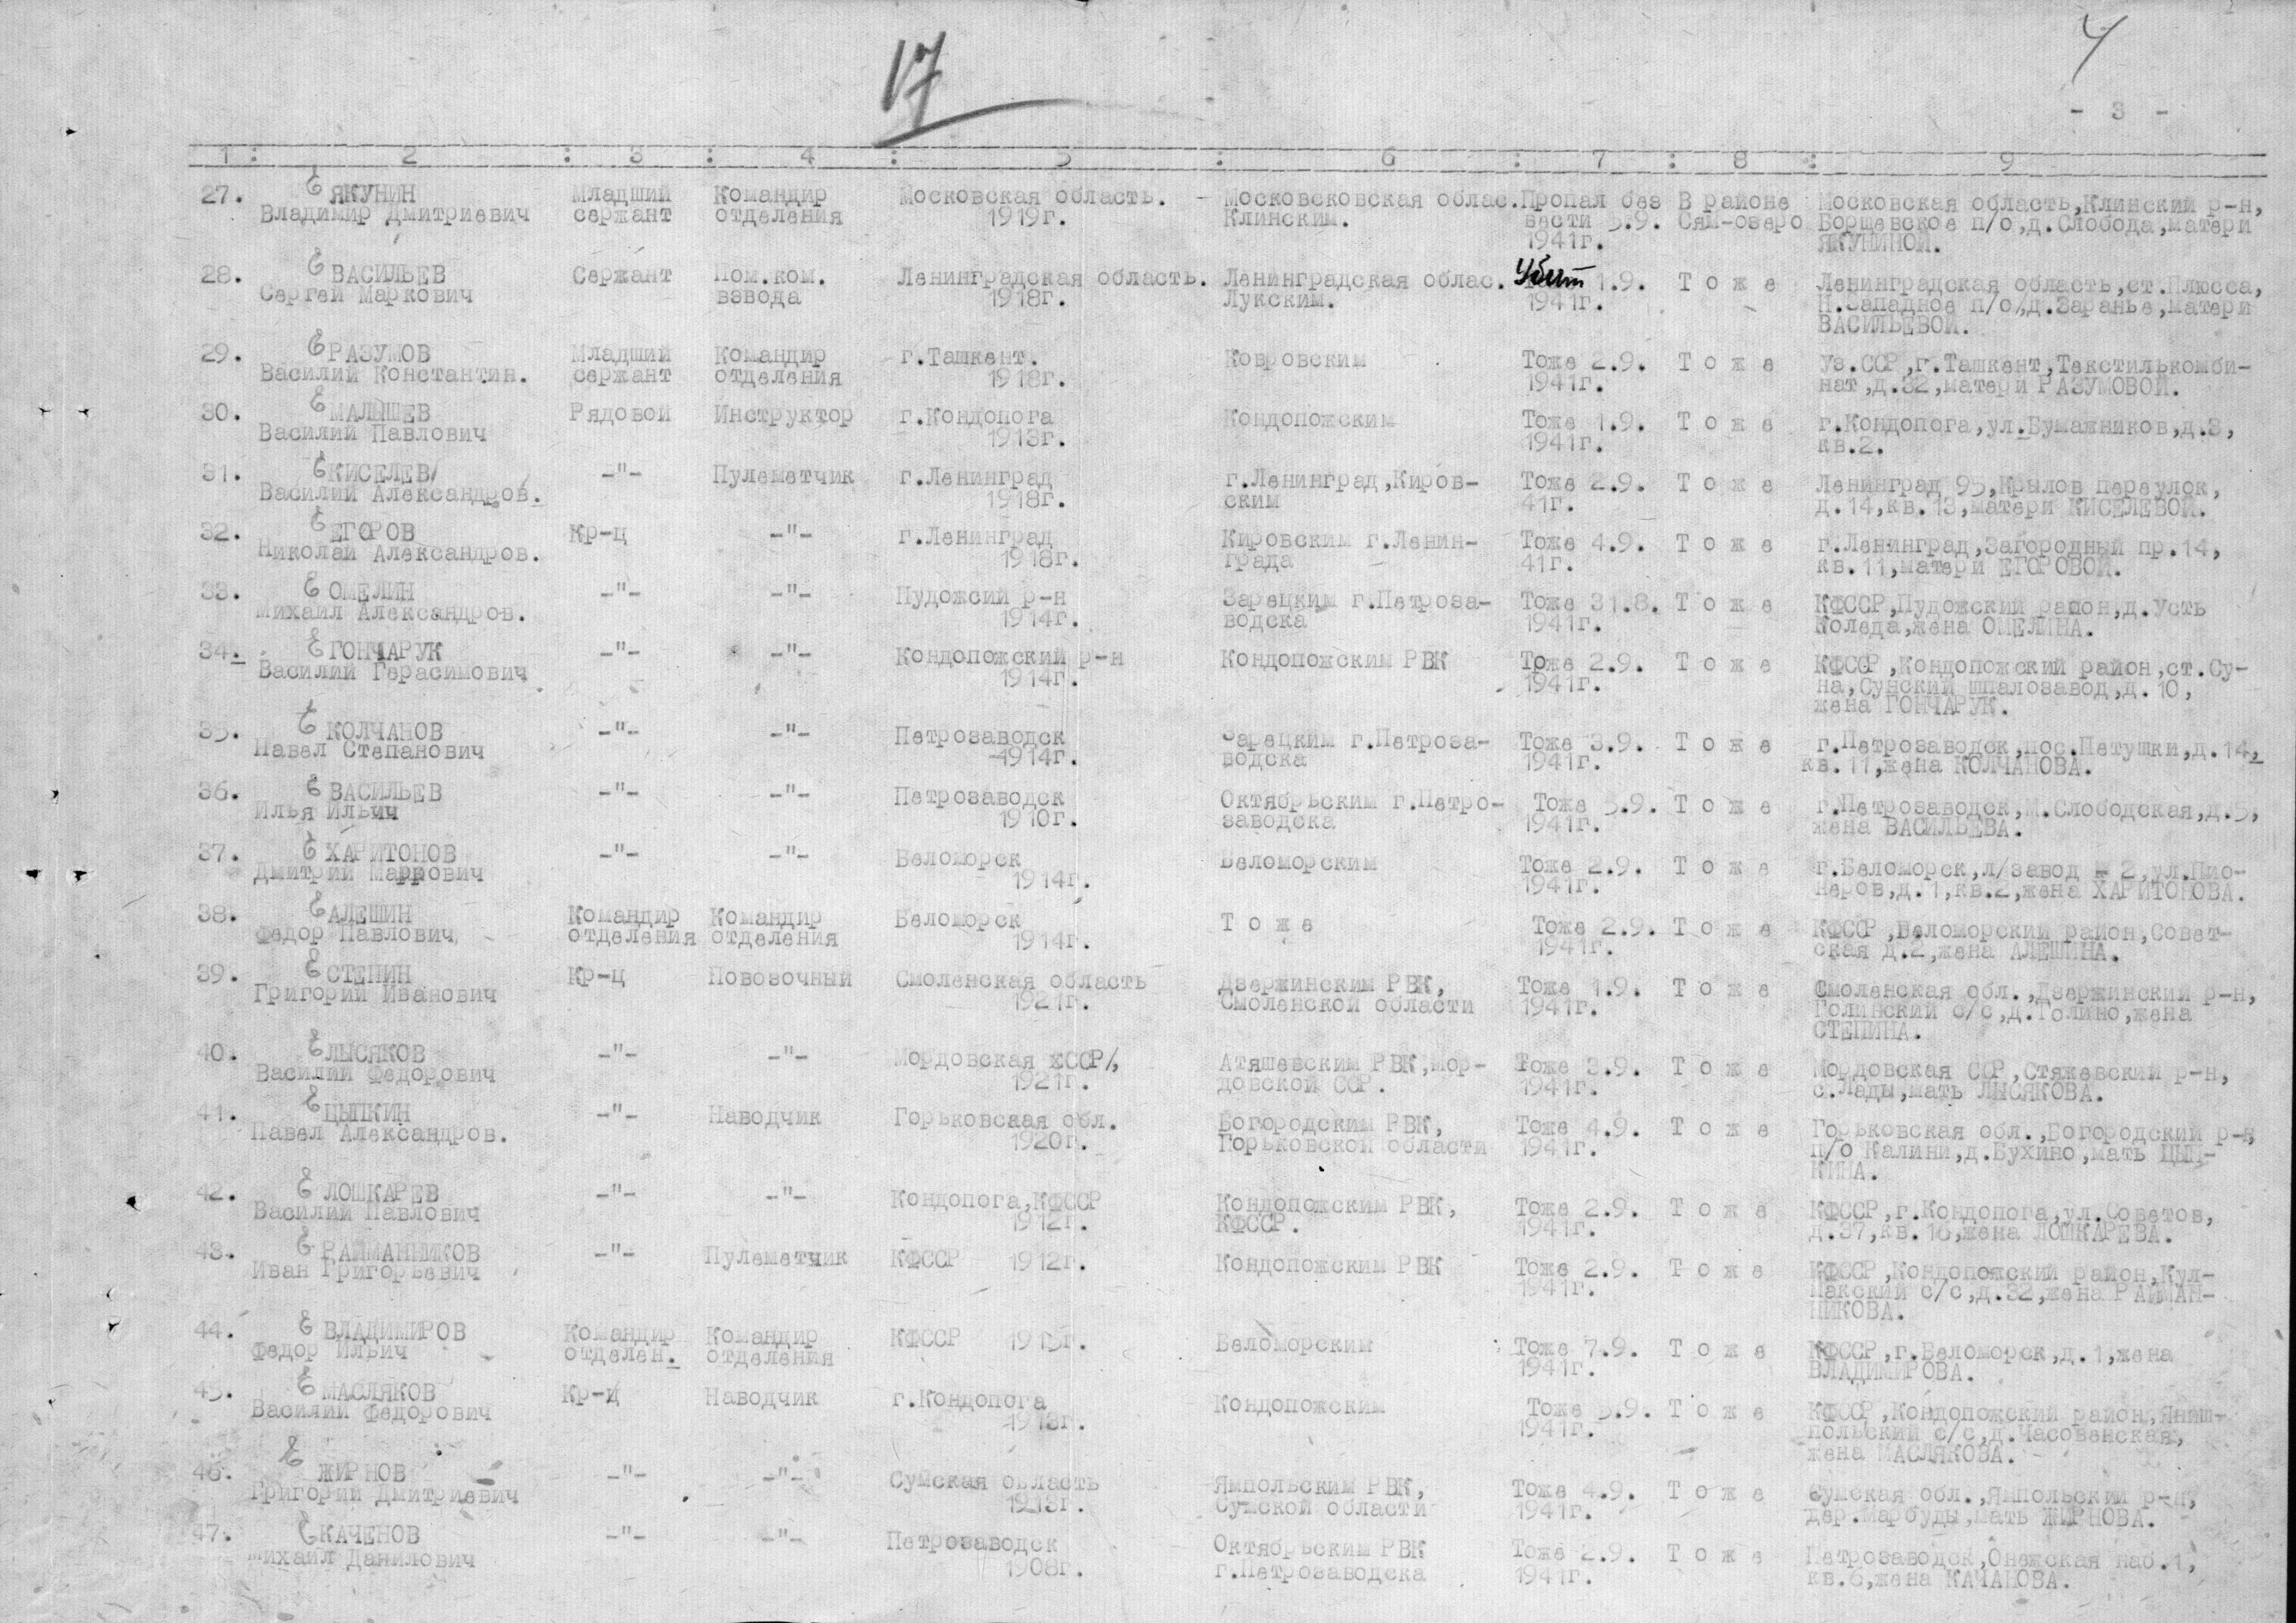 17
4
- 3 -
1 : 2 : 3 : 4 : 5 : 6 : 7 : 8 : 9
27. ЯКУНИН Младший Командир Московская область. - Московсковская облас. Пропал без В районе Московская область, Клинский р-н,
Владимир Дмитриевич сержант отделения 1919г. Клинским. вести 5.9. Сям-озеро Борщевское п/о, д.Слобода, матери
1941г. ЯКУНИНОЙ.
28. ВАСИЛЬЕВ Сержант Пом.ком. Ленинградская область. Ленинградская облас. Убит 1.9. Т о ж е Ленинградская область, ст.Плюсса,
Сергей Маркович взвода 1918г. Лукским. 1941г. Н.Западное п/о, д.Заранье, матери
ВАСИЛЬЕВОЙ.
29. РАЗУМОВ Младший Командир г.Ташкент. Ковровским Тоже 2.9. Т о ж е Уз.ССР, г.Ташкент, Текстилькомби-
Василий Константин. сержант отделения 1918г. 1941г. нат, д.32, матери РАЗУМОВОЙ.
30. МАЛЫШЕВ Рядовой Инструктор г.Кондопога Кондопожским Тоже 1.9. Т о ж е г.Кондопога, ул.Бумажников, д.3,
Василий Павлович 1913г. 1941г. кв.2.
31. КИСЕЛЕВ -"- Пулеметчик г.Ленинград г.Ленинград, Киров- Тоже 2.9. Т о ж е Ленинград 95, Крылов переулок,
Василий Александров. 1918г. ским 41г. д.14, кв.13, матери КИСЕЛЕВОЙ.
32. ЕГОРОВ Кр-ц -"- г.Ленинград Кировским г.Ленин- Тоже 4.9. Т о ж е г.Ленинград, Загородный пр.14,
Николай Александров. 1918г. града 41г. кв.11, матери ЕГОРОВОЙ.
33. ОМЕЛИН -"- -"- Пудожсий р-н Зарецким г.Петроза- Тоже 31.8. Т о ж е КФССР, Пудожский район, д.Усть
Михаил Александров. 1914г. водска 1941г. Коледа, жена ОМЕЛИНА.
34. ГОНЧАРУК -"- -"- Кондопожский р-н Кондопожским РВК Тоже 2.9. Т о ж е КФССР, Кондопожский район, ст.Су-
Василий Герасимович 1914г. 1941г. на, Сунский шпалозавод, д.10,
жена ГОНЧАРУК.
35. КОЛЧАНОВ -"- -"- Петрозаводск Зарецким г.Петроза- Тоже 3.9. Т о ж е г.Петрозаводск, пос.Петушки, д.14,
Павел Степанович 1914г. водска 1941г. кв.11, жена КОЛЧАНОВА.
36. ВАСИЛЬЕВ -"- -"- Петрозаводск Октябрьским г.Петро- Тоже 5.9. Т о ж е г.Петрозаводск, М.Слободская, д.5,
Илья Ильич 1910г. заводска 1941г. жена ВАСИЛЬЕВА.
37. ХАРИТОНОВ -"- -"- Беломорск Беломорским Тоже 2.9. Т о ж е г.Беломорск, л/завод № 2, ул.Пио-
Дмитрий Маркович 1914г. 1941г. неров, д.1, кв.2, жена ХАРИТОНОВА.
38. АЛЕШИН Командир Командир Беломорск Т о ж е Тоже 2.9. Т о ж е КФССР, Беломорский район, Совет-
Федор Павлович отделения отделения 1914г. 1941г. ская д.2, жена АЛЕШИНА.
39. СТЕПИН Кр-ц Повозочный Смоленская область Дзержинским РВК, Тоже 1.9. Т о ж е Смоленская обл., Дзержинский р-н,
Григорий Иванович 1921г. Смоленской области 1941г. Голинский с/с, д.Голино, жена
СТЕПИНА.
40. ЛЫСЯКОВ -"- -"- Мордовская ССР, Атяшевским РВК, мор- Тоже 3.9. Т о ж е Мордовская ССР, Стяжевский р-н,
Василий Федорович 1921г. довской ССР. 1941г. с.Лады, мать ЛЫСЯКОВА.
41. ЦЫПКИН -"- Наводчик Горьковская обл. Богородским РВК, Тоже 4.9. Т о ж е Горьковская обл., Богородский р-н,
Павел Александров. 1920г. Горьковской области 1941г. п/о Калини, д.Бухино, мать ЦЫП-
КИНА.
42. ЛОШКАРЕВ -"- -"- Кондопога, КФССР Кондопожским РВК, Тоже 2.9. Т о ж е КФССР, г.Кондопога, ул.Советов,
Василий Павлович 1912г. КФССР. 1941г. д.37, кв.16, жена ЛОШКАРЕВА.
43. РАЙМАННИКОВ -"- Пулеметчик КФССР 1912г. Кондопожским РВК Тоже 2.9. Т о ж е КФССР, Кондопожский район, Кул-
Иван Григорьевич 1941г. макский с/с, д.32, жена РАЙМАН-
НИКОВА.
44. ВЛАДИМИРОВ Командир Командир КФССР 1915г. Беломорским Тоже 7.9. Т о ж е КФССР, г.Беломорск, д.1, жена
Федор Ильич отделен. отделения 1941г. ВЛАДИМИРОВА.
45. МАСЛЯКОВ Кр-ц Наводчик г.Кондопога Кондопожским Тоже 5.9. Т о ж е КФССР, Кондопожский район, Яниш-
Василий Федорович 1913г. 1941г. польский с/с, д.Часовенская,
жена МАСЛЯКОВА.
46. ЖИРНОВ -"- -"- Сумская область Ямпольским РВК, Тоже 4.9. Т о ж е Сумская обл., Ямпольский р-н,
Григорий Дмитриевич Сумской области 1941г. дер.Марбуды, мать ЖИРНОВА.
47. КАЧЕНОВ -"- -"- Петрозаводск Октябрьским РВК Тоже 2.9. Т о ж е Петрозаводск, Онежская наб.1,
Михаил Данилович 1908г. г.Петрозаводска 1941г. кв.6, жена КАЧАНОВА.